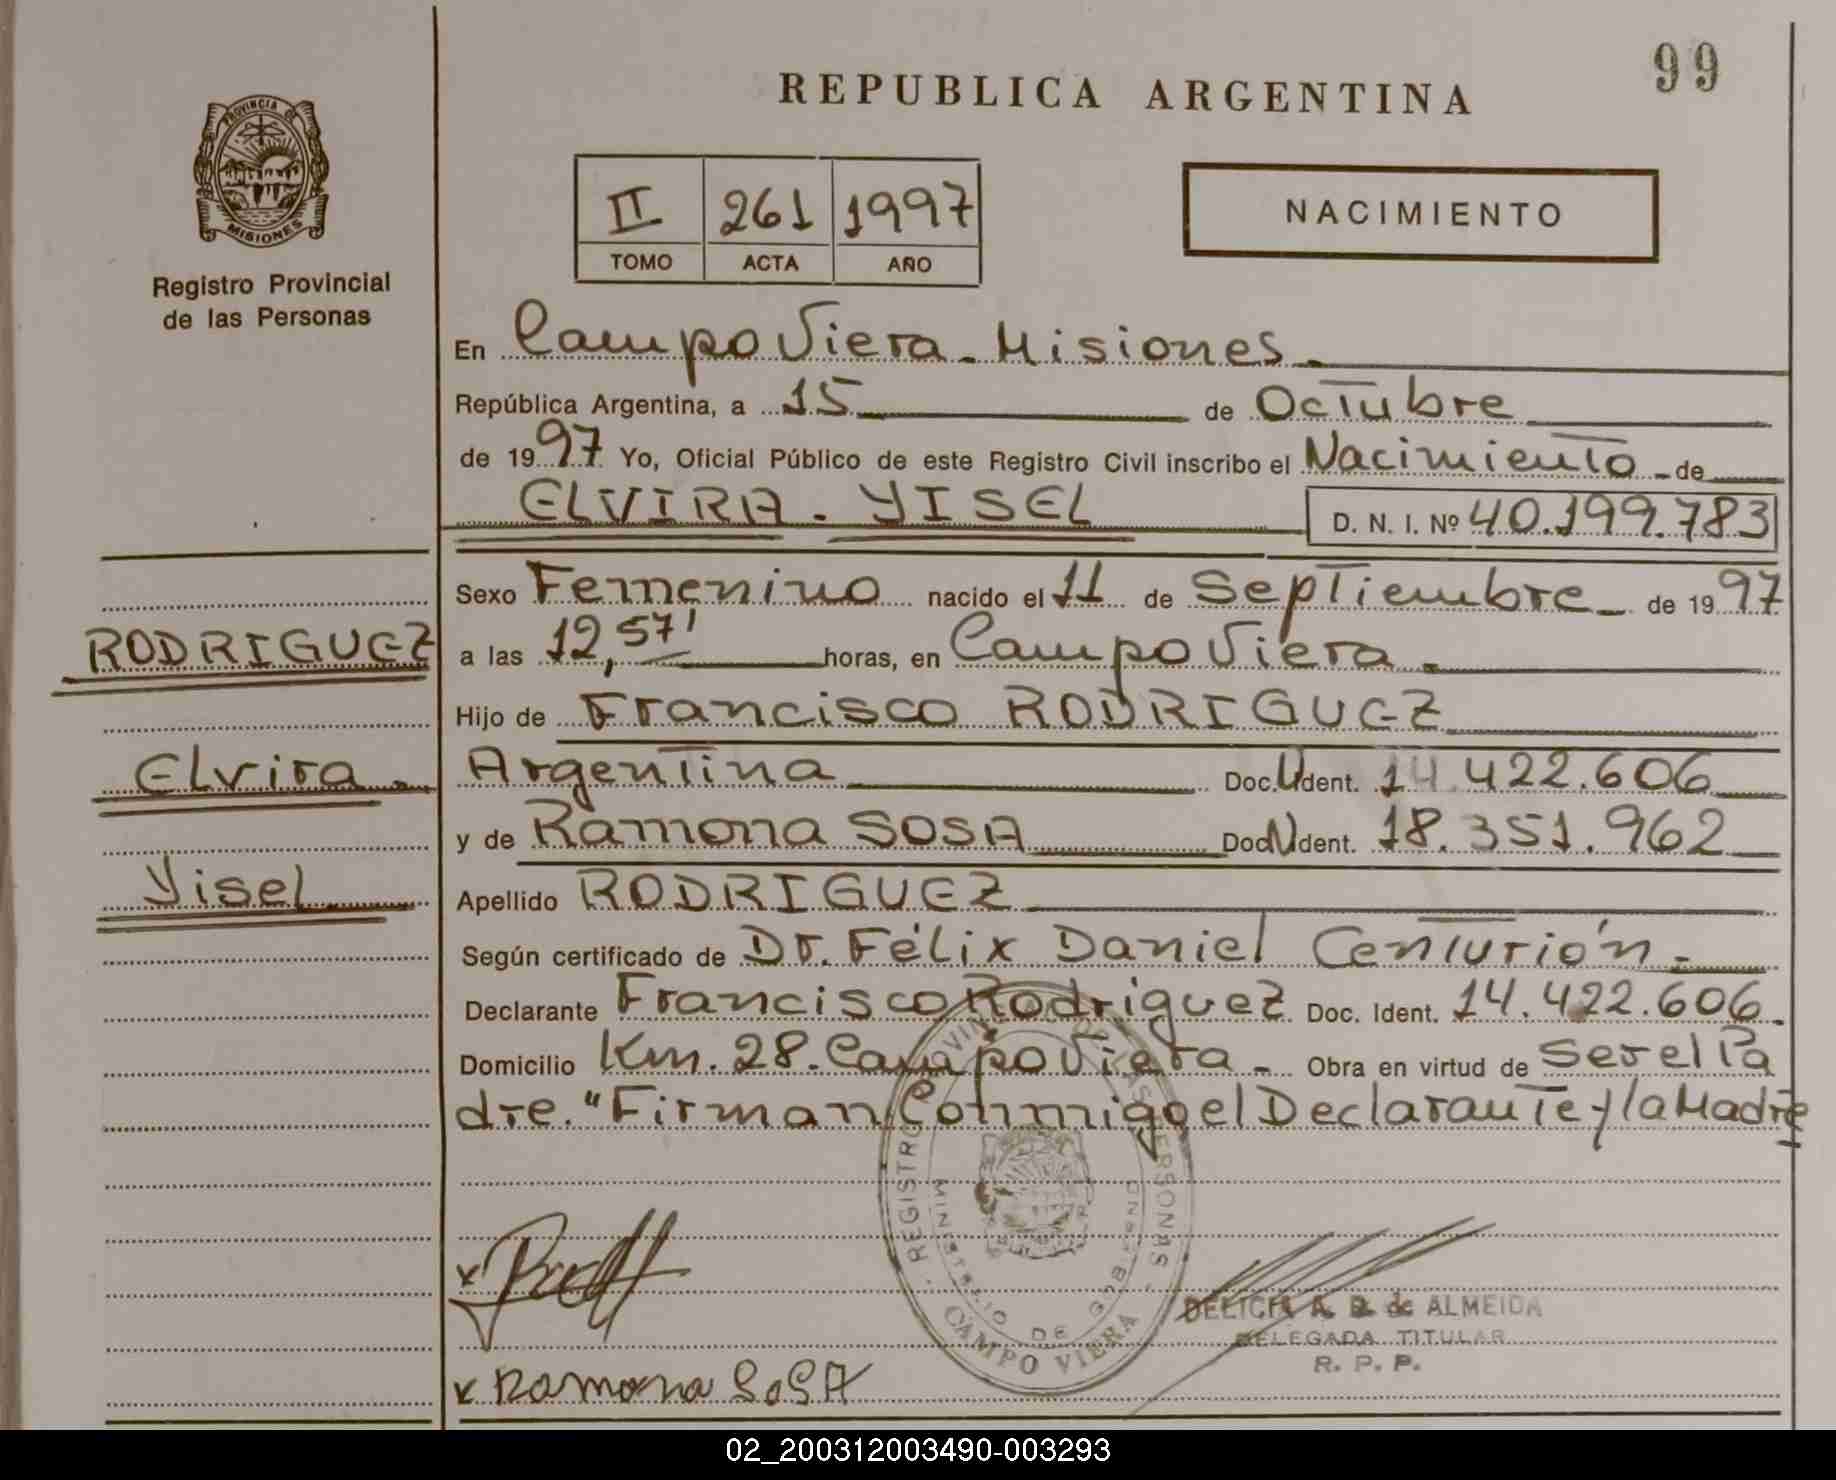 99
REPUBLICA ARGENTINA
PROVINCIA DE
MISIONES
Registro Provincial
de las Personas
II 261 1997
TOMO ACTA AÑO
NACIMIENTO
En Campo Viera - Misiones -
República Argentina, a 15 de Octubre
de 1997 Yo, Oficial Público de este Registro Civil inscribo el Nacimiento - de
ELVIRA - YISEL D. N. I. Nº 40.199.783
Sexo Femenino nacido el 11 de Septiembre - de 1997
RODRIGUEZ
a las 12,57' horas, en Campo Viera -
Hijo de Francisco RODRIGUEZ
Elvira -
Argentina Doc. Ident. 14.422.606
y de Ramona SOSA Doc. Ident. 18.351.962
Yisel
Apellido RODRIGUEZ
Según certificado de Dr. Félix Daniel Centurión -
Declarante Francisco Rodriguez Doc. Ident. 14.422.606
Domicilio Km. 28. Campo Viera - Obra en virtud de Ser el Pa
dre. "Firman Conmigo el Declarante y la Madre
REGISTRO PROVINCIAL DE LAS PERSONAS
MINISTERIO DE GOBIERNO
CAMPO VIERA
DELICIA A. B. de ALMEIDA
DELEGADA TITULAR
R. P. P.
x Ramona SOSA
02_200312003490-003293